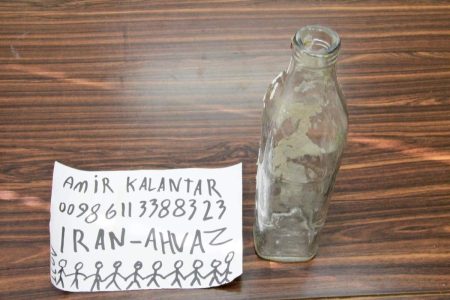 AMIR KALANTAR
00986113388323
IRAN-AHVAZ